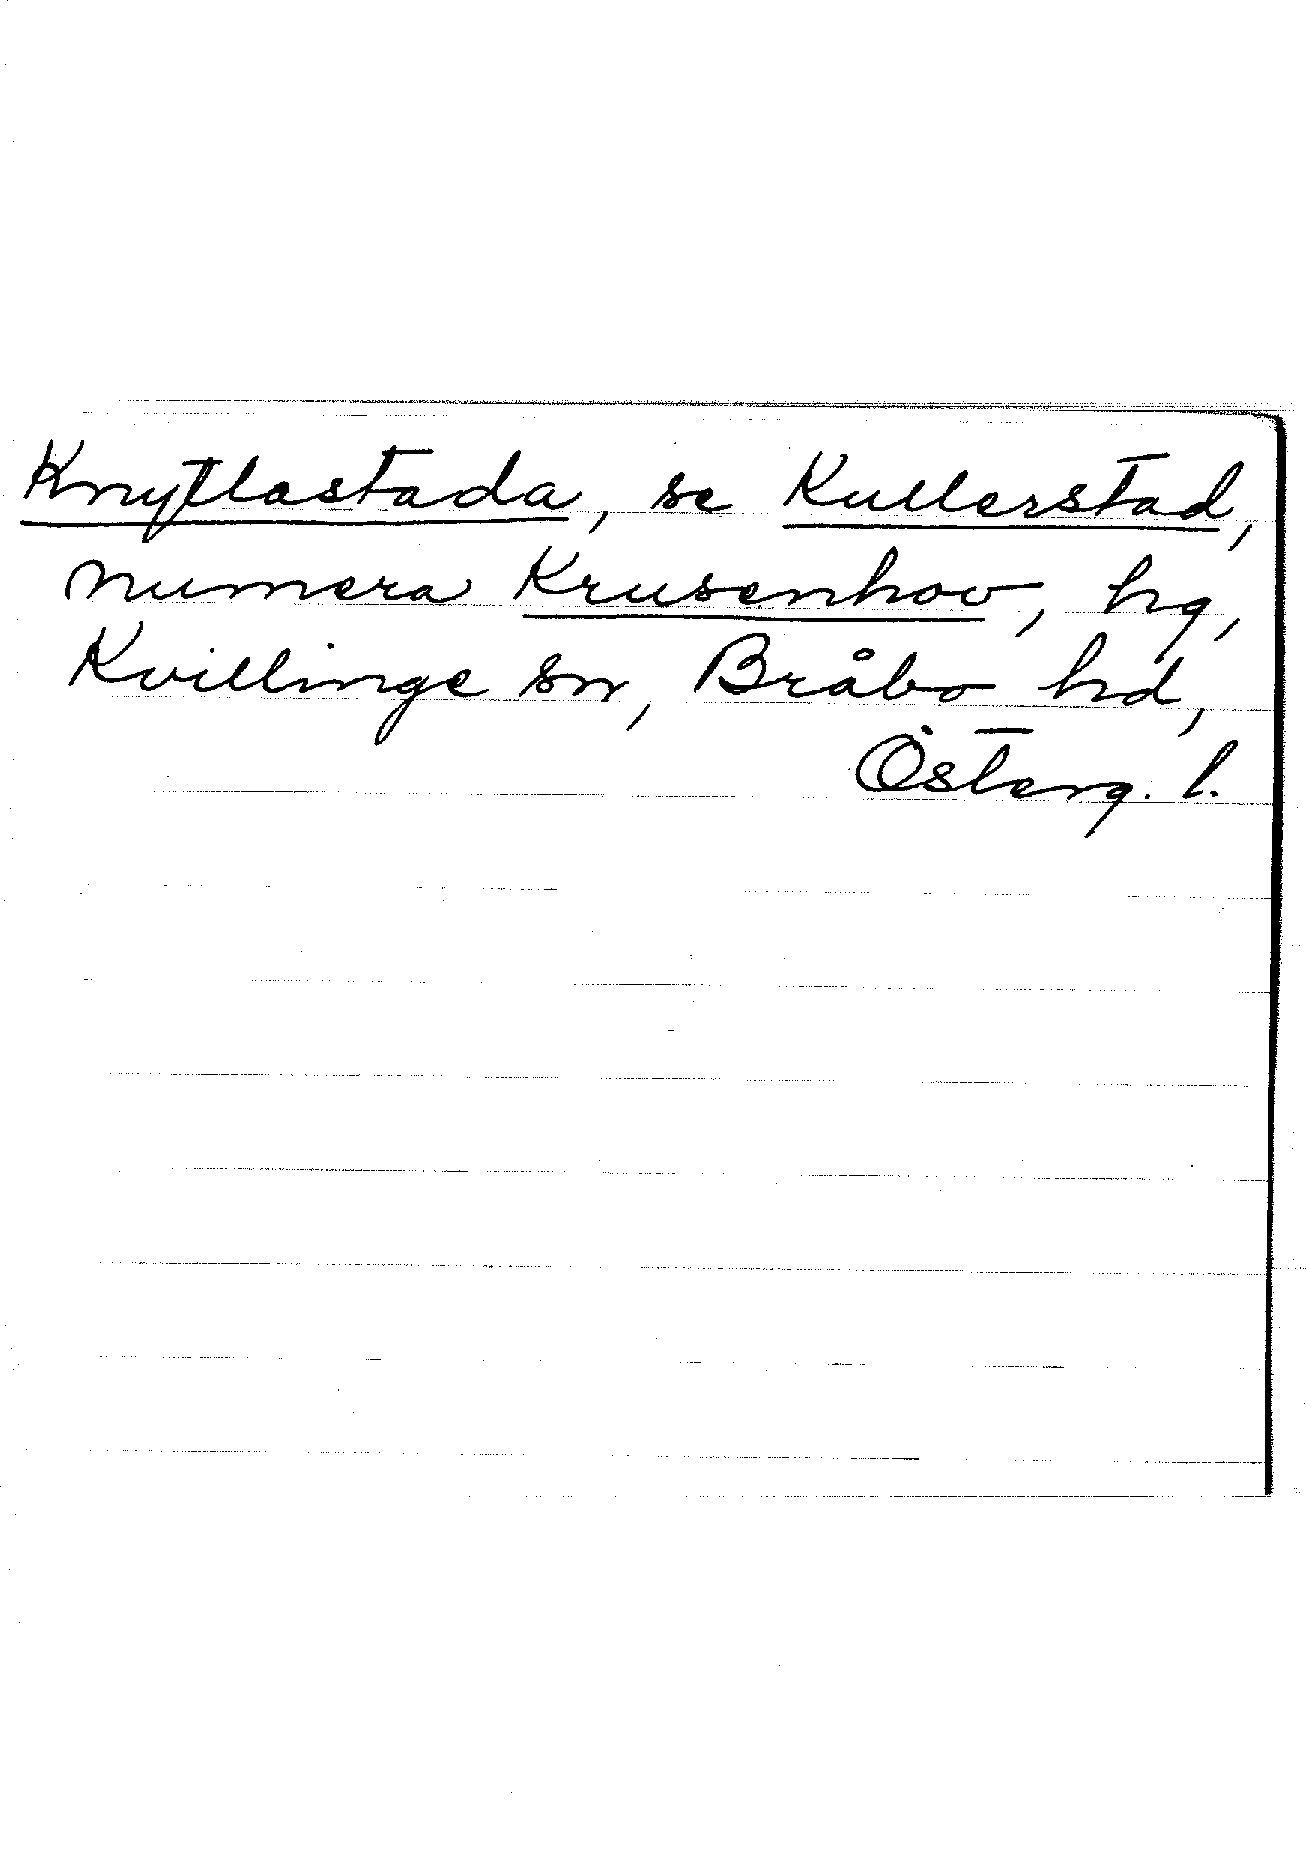 Knytlastada, se Kullerstad,
numera Krusenhov, hg,
Kvillinge sn, Bråbo hd,
Österg. l.